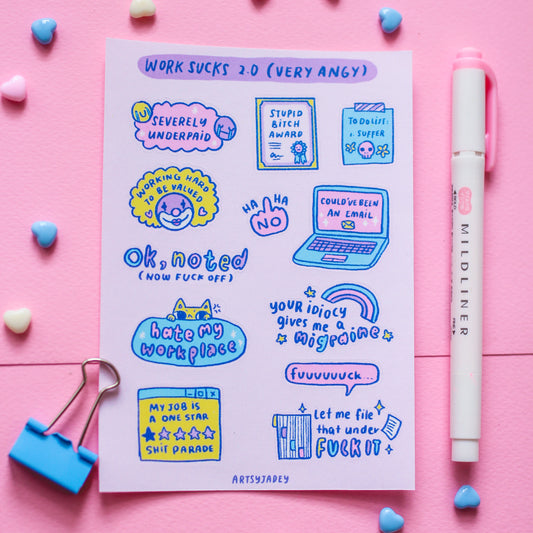 WORK SUCKS 2.0 (VERY ANGY)
SEVERELY
UNDERPAID
STUPID
BITCH
AWARD
TO DO LIST:
1. SUFFER
WORKING HARD
TO BE VALUED
HA HA
NO
COULD'VE BEEN
AN EMAIL
Ok, noted
(NOW FUCK OFF)
YOUR IDIOCY
gives me a
migraine
hate my
workplace
fuuuuuuck...
MY JOB IS
A ONE STAR
SHIT PARADE
Let me file
that under
FUCK IT
ARTSYJADEY
MILDLINER